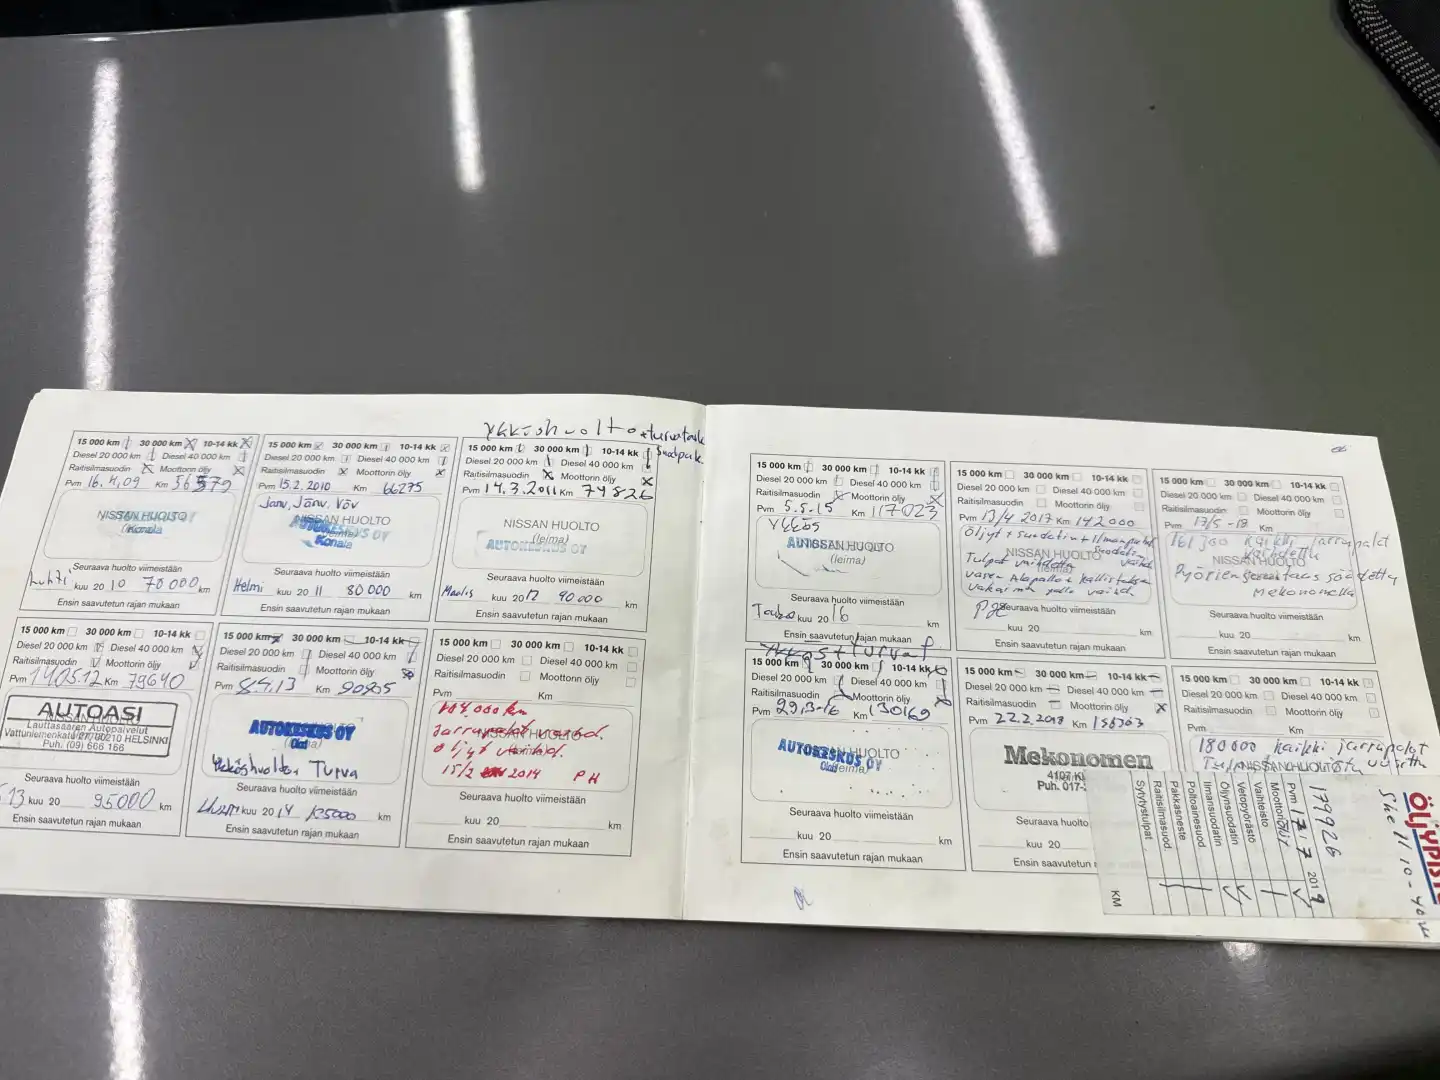 Ykköshuolto + turvatark
15 000 km 30 000 km 10-14 kk
Diesel 20 000 km Diesel 40 000 km
Raitisilmasuodin Moottorin öljy
Pvm 16.4.09 Km 56579
NISSAN HUOLTO
(leima)
Konala
Seuraava huolto viimeistään
Huhti kuu 2010 70000 km
Ensin saavutetun rajan mukaan
15 000 km 30 000 km 10-14 kk
Diesel 20 000 km Diesel 40 000 km
Raitisilmasuodin Moottorin öljy
Pvm 15.2.2010 Km 66275
Janv, Jänv, Vöv
NISSAN HUOLTO
AUTOKESKUS OY
(leima)
Konala
Seuraava huolto viimeistään
Helmi kuu 2011 80000 km
Ensin saavutetun rajan mukaan
15 000 km 30 000 km 10-14 kk
Diesel 20 000 km Diesel 40 000 km
Raitisilmasuodin Moottorin öljy
Pvm 14.3.2011 Km 74826
NISSAN HUOLTO
(leima)
AUTOKESKUS OY
Seuraava huolto viimeistään
Maalis kuu 2012 90000 km
Ensin saavutetun rajan mukaan
15 000 km 30 000 km 10-14 kk
Diesel 20 000 km Diesel 40 000 km
Raitisilmasuodin Moottorin öljy
Pvm 14.05.12 Km 79640
AUTOASI
NISSAN HUOLTO
Lauttasaaren Autopalvelut
Vattuniemenkatu 27, 00210 HELSINKI
Puh. (09) 666 166
Seuraava huolto viimeistään
13 kuu 20 95000 km
Ensin saavutetun rajan mukaan
15 000 km 30 000 km 10-14 kk
Diesel 20 000 km Diesel 40 000 km
Raitisilmasuodin Moottorin öljy
Pvm Km 90905
AUTOKESKUS OY
(leima)
Ykköshuolto, Turva
Seuraava huolto viimeistään
Huhti kuu 2014 105000 km
Ensin saavutetun rajan mukaan
15 000 km 30 000 km 10-14 kk
Diesel 20 000 km Diesel 40 000 km
Raitisilmasuodin Moottorin öljy
Pvm Km
104.000 km
Jarrupalat vaihd.
NISSAN HUOLTO
öljyt vaihd.
15/2 2014 PH
Seuraava huolto viimeistään
kuu 20 km
Ensin saavutetun rajan mukaan
15 000 km 30 000 km 10-14 kk
Diesel 20 000 km Diesel 40 000 km
Raitisilmasuodin Moottorin öljy
Pvm 5.5.15 Km 117023
Ykkös
NISSAN HUOLTO
Seuraava huolto viimeistään
Touko kuu 2016 km
Ensin saavutetun rajan mukaan
15 000 km 30 000 km 10-14 kk
Diesel 20 000 km Diesel 40 000 km
Raitisilmasuodin Moottorin öljy
Pvm 13/4 2017 Km 142000
Öljyt + suodatin + Ilmanpuhd.
Suodatin
NISSAN HUOLTO
Tulpat vaihdettu
vasen Alapallo + kallistuksen
vakaimen pallo vaihd.
Seuraava huolto viimeistään
kuu 20 km
Ensin saavutetun rajan mukaan
15 000 km 30 000 km 10-14 kk
Diesel 20 000 km Diesel 40 000 km
Raitisilmasuodin Moottorin öljy
Pvm 17/5 -18 Km
kaikki jarrupalat
vaihdettu
NISSAN HUOLTO
säädetty
Mekonomella
Seuraava huolto viimeistään
kuu 20 km
Ensin saavutetun rajan mukaan
Ykkös + turva
15 000 km 30 000 km 10-14 kk
Diesel 20 000 km Diesel 40 000 km
Raitisilmasuodin Moottorin öljy
Pvm 29.3-16 Km 130169
AUTOKESKUS OY
NISSAN HUOLTO
(leima)
Seuraava huolto viimeistään
kuu 20 km
Ensin saavutetun rajan mukaan
15 000 km 30 000 km 10-14 kk
Diesel 20 000 km Diesel 40 000 km
Raitisilmasuodin Moottorin öljy
Pvm 22.2.2018 Km 158303
Mekonomen
Puh. 017-
Seuraava huolto
kuu 20
Ensin saavutetun
15 000 km 30 000 km 10-14 kk
Diesel 20 000 km Diesel 40 000 km
Raitisilmasuodin Moottorin öljy
Pvm Km
180000 kaikki jarrupalat
NISSAN HUOLTO
179926
Pvm 17.7 2019
Moottoriöljy
Vaihteisto
Vetopyörästö
Öljynsuodatin
Ilmansuodatin
Polttoainesuod.
Pakkasneste
Raitisilmasuod.
Sytytystulpat
KM
5k 11 10-40w